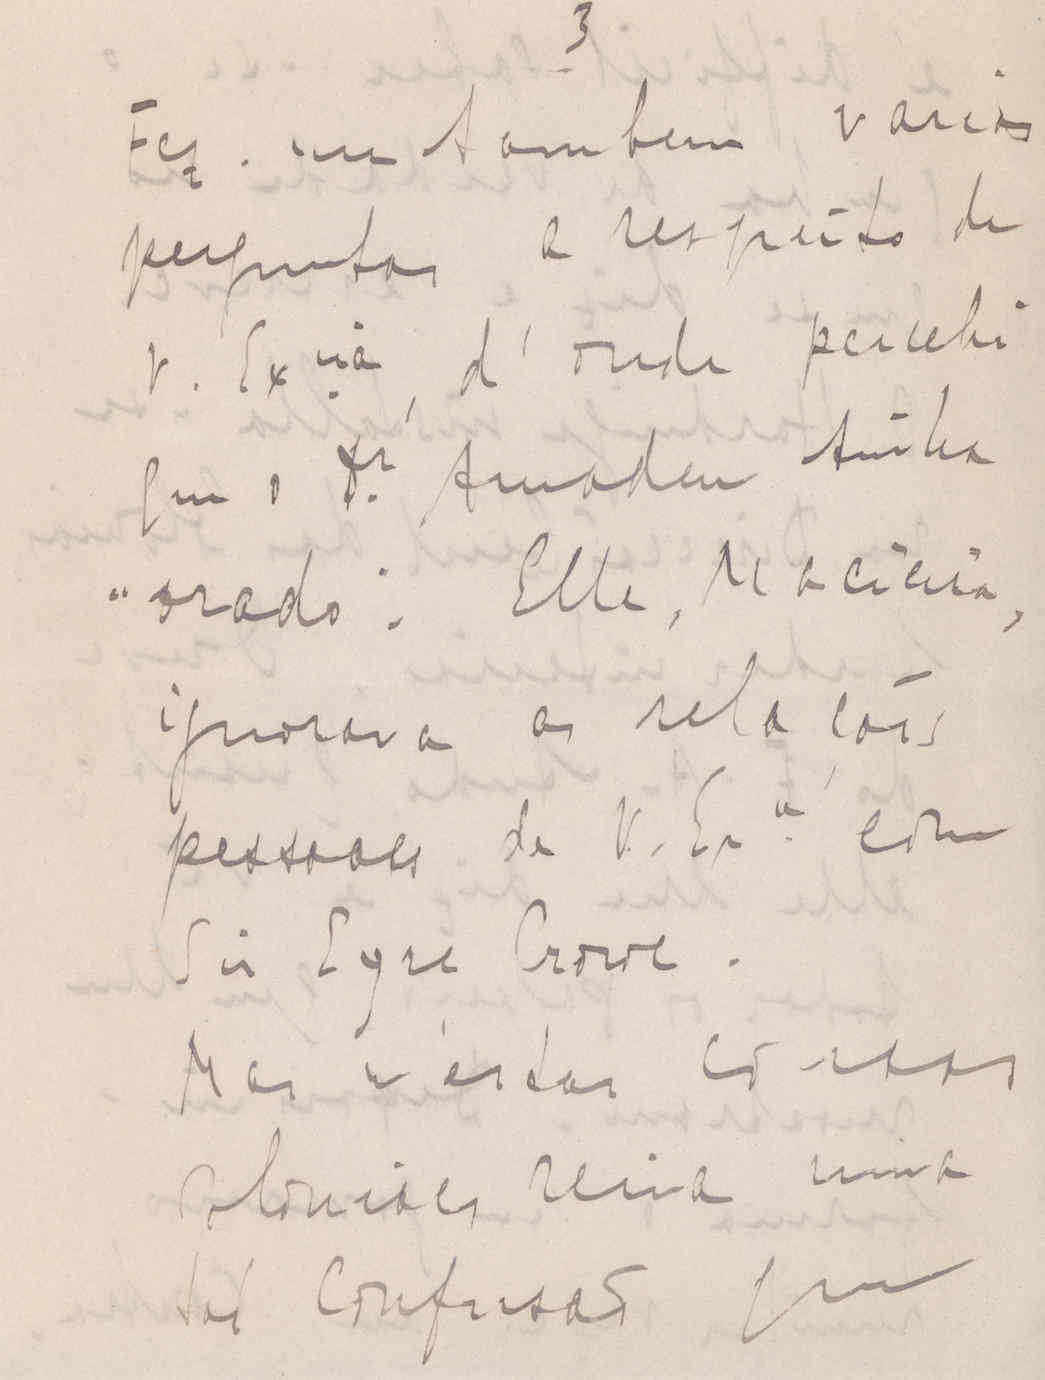 3
Fez-me tambem varias
perguntas a respeito de
V. Exciª, d'onde percebi
que o Dr. Amadeu tinha
"orado". Elle, Macieira,
ignorava as relações
pessoaes de V. Exª com
Sir Eyre Crowe.
Mas n'estas cousas
coloniaes reina uma
tal confusão que